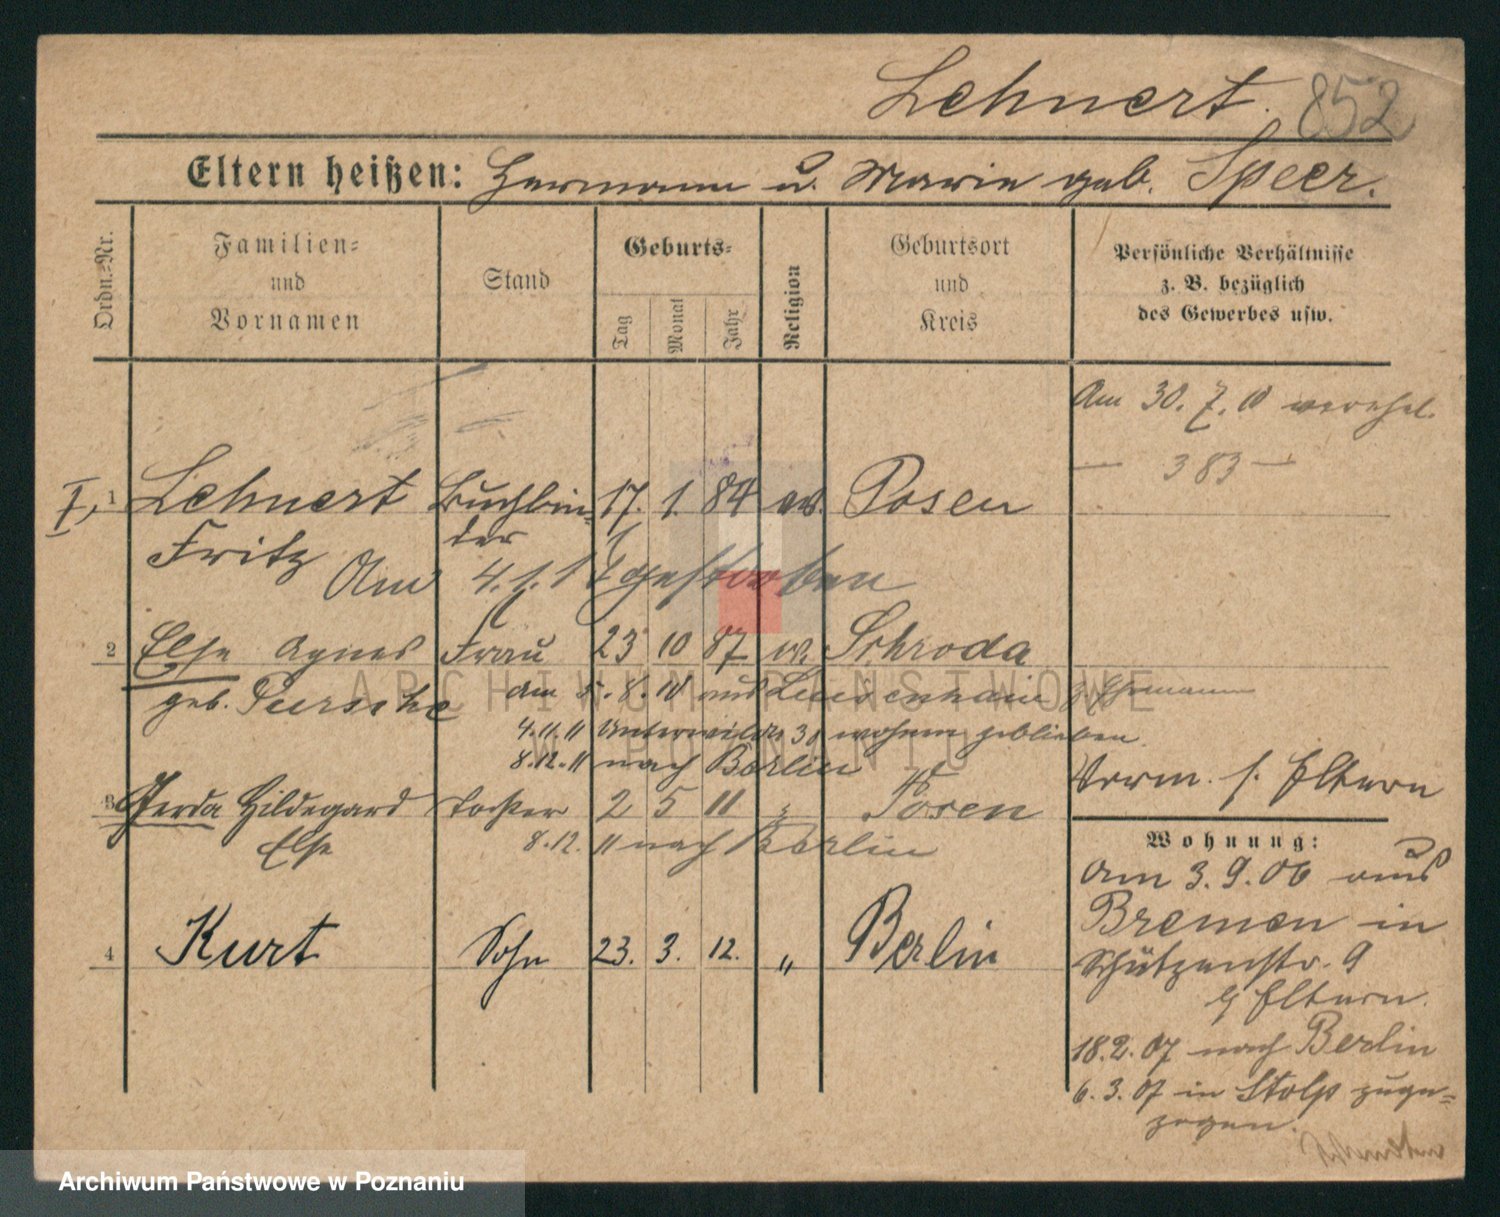 Lehnert. 852
Eltern heißen: Hermann u. Marie geb. Speer.
Ordn.=Nr.
Familien=
und
Vornamen
Stand
Geburts=
Tag
Monat
Jahr
Religion
Geburtsort
und
Kreis
Persönliche Verhältnisse
z. B. bezüglich
des Gewerbes usw.
Am 30. 7. 10 verehel.
— 383 —
I, 1 Lehnert Buchbin= 17. 1. 84 ev. Posen
Fritz der
Am 4. 1. gestorben
2 Else Agnes Frau 23 10 87 ev. Schroda
geb. am 5. 8. 10 aus z. Ehemann
4.11.11 30 wohnen geblieben
8.12.11 nach Berlin
Verm. s. Eltern
3 Gerda Hildegard Tochter 2 5 11 " Posen
Else 8.12. 11 nach Berlin
4 Kurt Sohn 23. 3. 12. " Berlin
Wohnung:
Am 3. 9. 06 aus
Bremen in
Schützenstr. 9
b/ Eltern.
18.2.07 nach Berlin
6. 3. 07 in Stolp zuge=
zogen.
ARCHIWUM PAŃSTWOWE
W POZNANIU
Archiwum Państwowe w Poznaniu